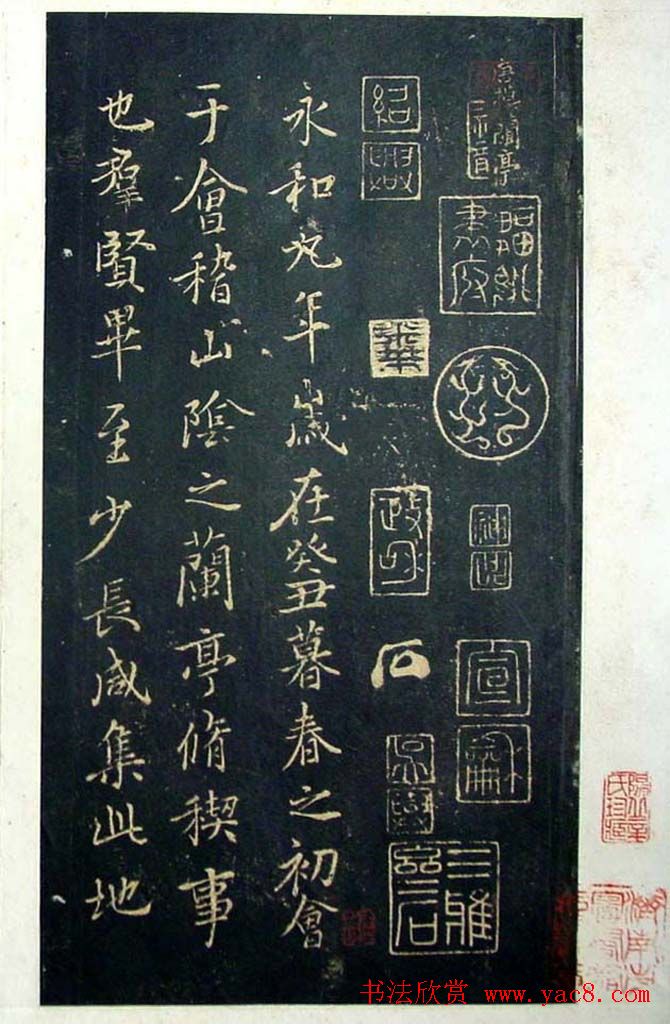 唐模蘭亭
宣和
紹興
永和九年歲在癸丑暮春之初會
于會稽山陰之蘭亭脩稧事
也羣賢畢至少長咸集此地
书法欣赏 www.yac8.com